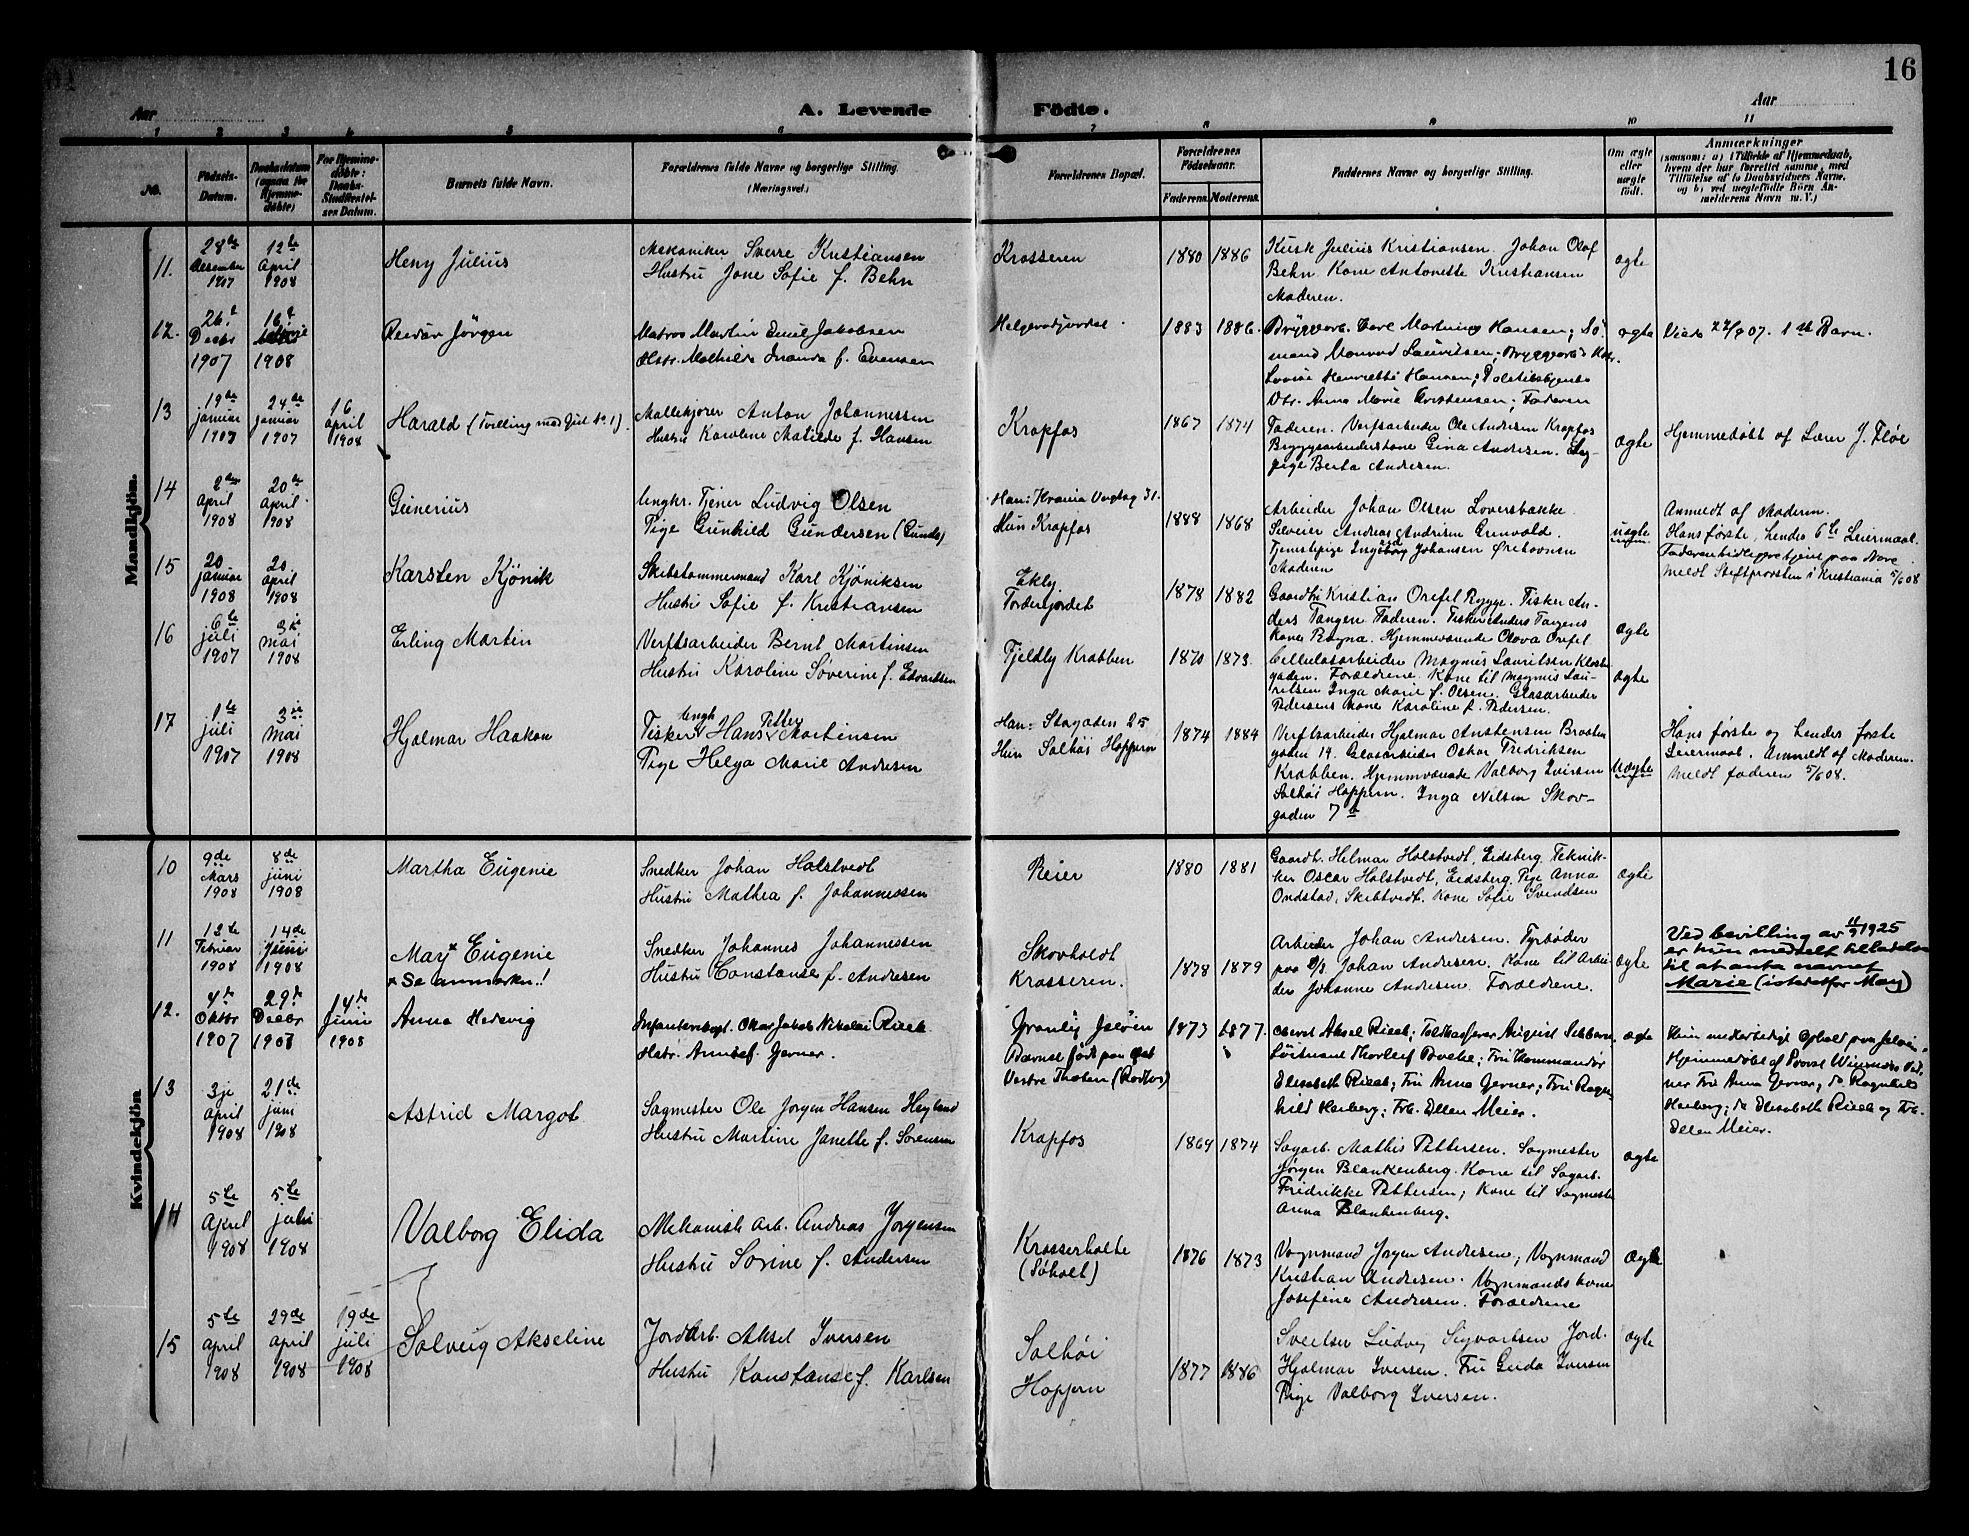 16
Aar
A. Levende
Fødte.
Aar
1 2 3 4 5 6 7 8 9 10 11
No.
Fødsels-Datum.
Daabsdatum (ogsaa for Hjemme-døbte)
For Hjemme-døbte: Daabs-Stadfæstel-ses Datum.
Barnets fulde Navn.
Forældrenes fulde Navne og borgerlige Stilling.
(Næringsvei.)
Forældrenes Bopæl.
Forældrenes Fødselsaar.
Faderens. Moderens.
Faddernes Navne og borgerlige Stilling.
Om ægte eller uægte født.
Anmærkninger
(saasom: a) i Tilfælde af Hjemmedaab,
hvem der har forrettet samme, med
Tilføielse af to Daabsvidners Navne,
og b) ved uegtefødte Børn An-
melderens Navn m. V.)
Mandkjøn.
11. 28de Desember 1907
12te April 1908
Heny Julius
Mekaniker Sverre Kristiansen
Hustru Jone Sofie f. Behn
Krosseren
1880 1886
Kusk Julius Kristiansen. Johan Olaf
Behn Kone Antonette Kristiansen
Moderen.
ægte
12. 26. Decbr 1907
16 1908
Reidar Jörgen
Matros Martin Emil Jakobsen
Hstr. Mathilde Inanda f. Evensen
1883 1886.
Bryggearb. Carl Martinius Hansen; Sö-
mand Monrad Lauritsen; Bryggearb's Kone
Lovise Henriette Hansen; Politibtjents
Dtr. Anna Marie Kristensen; Faderen
ægte
Viede 22/9 07. 1ste Barn.
13 19de januar 1907
24de januar 1907
16 april 1908
Harald (Tvilling med Gut No 1).
Møllekjører Anton Johannessen
Hustru Karoline Matilde f. Hansen
Krapfos
1867 1874
Faderen. Verftsarbeider Ole Andersen Krapfos
Bryggearbeiderskone Gina Andersen.
Pige Berta Andersen.
ægte
Hjemmedøbt af Lærer J. Fløe
14 2den April 1908
20de April 1908
Gunerius
Ungkr. Tjener Ludvig Olsen
Pige Gunhild Gundersen (Gunds)
Han: Krania Vogtsg 31.
Hun Krapfos
1888 1868
Arbeider Johan Olsen Loversbakke.
Selveier Andreas Andersen Grunvold.
Tjenestepige Ingeborg Johansen
Moderen
uægte
Anmeldt af Moderen.
Hans første, hendes 6te Leiermaal.
Meldt Stiftprovsten i Kristiania 5/6 08
15 20 januar 1908
20. april 1908
Karsten Kjönik
Skibstømmermand Karl Kjöniksen
Hustru Sofie f. Kristiansen
Ekly
Torderjordet
1878 1882
Gaardbr. Kristian Orefel Rygge. Fisker An-
ders Tangen Faderen. Fisker Anders Tangens
Kone Ragna. Hjemmeværende Olava Orefel
ægte
16 6te juli 1907
3die mai 1908
Erling Martin
Verftsarbeider Bernt Martinsen
Hustru Karoline Søverine f. Edvardsen
Fjeldly Krabben
1870 1873.
Cellulosarbeider Magnus Lauritsen Kloster
gaden. Forældrene. Kone til Magnus Lau-
ritsen Inga Marie f. Olsen. Glasarbeider
Pedersens Kone Karoline f. Pedersen.
ægte
17 1te juli 1907
3die Mai 1908
Hjalmar Haakon
Ungk Petter
Fisker Hans Martinsen
Pige Helga Marie Andresen
Han: Stogaden 25
Hun Solhöi Hoppern
1874 1884
Verftsarbeider Hjalmar Anstensen Braaten
gaden 14. Glasarbeider Oskar Fredriksen
Krabben. Hjemmværende Valborg Iversen
Solhöi Hoppern. Inga Nilsen Skov-
gaden 7b
Uægte
Hans første og hendes første
Leiermaal. Anmeldt af Moderen.
Meldt faderen 5/6 08.
Kvindekjön
10 9de Mars 1908
8de juni 1908
Martha Eugenie
Snedker Johan Holstvedt
Hustru Mathea f. Johannessen
Reier
1880 1881
Gaardb. Helmar Holstvedt, Eidsberg. Teknik-
ker Oscar Holstvedt, Eidsberg. Pige Anna
Ondstad, Skibtvedt. Kone Sofie Svendsen
ægte
11 12te Februar 1908
14de Juni 1908
May* Eugenie
* Se anmerkn.!
Snedker Johannes Johannessen
Hustru Constanse f. Andresen
Skovholdt
Krosseren.
1878 1879
Arbeider Johan Andresen. Fyrbøder
paa D/S. Johan Andresen. Kone til Arbei
der Johanne Andresen. Forældrene.
ægte
Ved bevilling av 11/9 1925
er hun meddelt tilladelse
til at anta navnet
Marie (istedetfor May)
12. 4de Oktbr 1907
29de Decbr 1907
14de Juni 1908
Anna Hedevig
Infanterikapt. Oskar Jakob Nikolai Rieck
Hstr. Anna f. Gerner.
Granlig Jelöen
Barnet født paa
Vestre Thoten (Rodfos)
1873 1877.
Oberst Aksel Rieck; Toldkasserer August Sibbern
Löitnant Thorleif Bovche; Fru Kommandør
Elisabeth Rieck; Fru Anna Gerner; Fru Ragn
hild Herberg; Frk. Ellen Meier.
ægte
Hun midlertidigt Ophold paa Jelöen.
Hjemmedøbt af Provst
ner Fru Anna Gerner, do Ragnhild
Herberg; do Elisabeth Rieck og Frk.
Ellen Meier.
13 3je April 1908
21de juni 1908
Astrid Margot
Sagmester Ole Jorgen Hansen Heyland
Hustru Martine Janette f. Sorensen
Krapfos
1864 1874
Sagarb. Mathis Pettersen. Sagmester
Jörgen Blankenberg. Kone til Sagarb.
Fredrikke Pettersen; Kone til Sagmester
Anna Blankenberg.
ægte
14 5te April 1908
5te juli 1908
Valborg Elida
Mekanisk Arb. Andreas Jorgensen
Hustru Sorine f. Andersen
Krosserholte
(Søholt)
1876 1873
Vognmand Jorgen Andresen; Vognmand
Kristian Andresen. Vognmands kone
Josefine Andresen. Forældrene
Ægte
15 5te April 1908
29de april 1908
19de juli 1908
Solveig Akseline
Jordarb. Aksel Iversen
Hustru Konstanse f. Karlsen
Solhöi
Hoppern
1877 1886
Sveitser Ludvig Sigvartsen Jord.
Hjalmar Iversen. Fru Gerda Iversen
Pige Valborg Iversen.
ægte